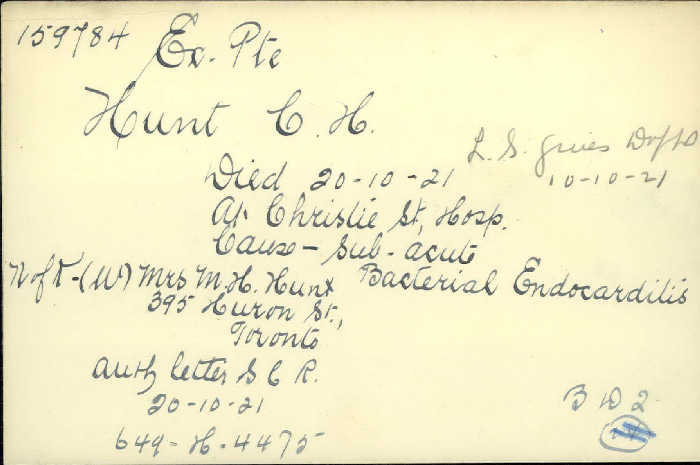 159784 Ex. Pte
Hunt C. H.
L. S. gives D of D
10-10-21
Died 20-10-21
At Christie St, Hosp.
Cause - Sub-acute
Bacterial Endocarditis
N of K - (W) Mrs M. H. Hunt
395 Huron St.,
Toronto
Auth letter S C R.
20-10-21
649-H-4475
B D 2